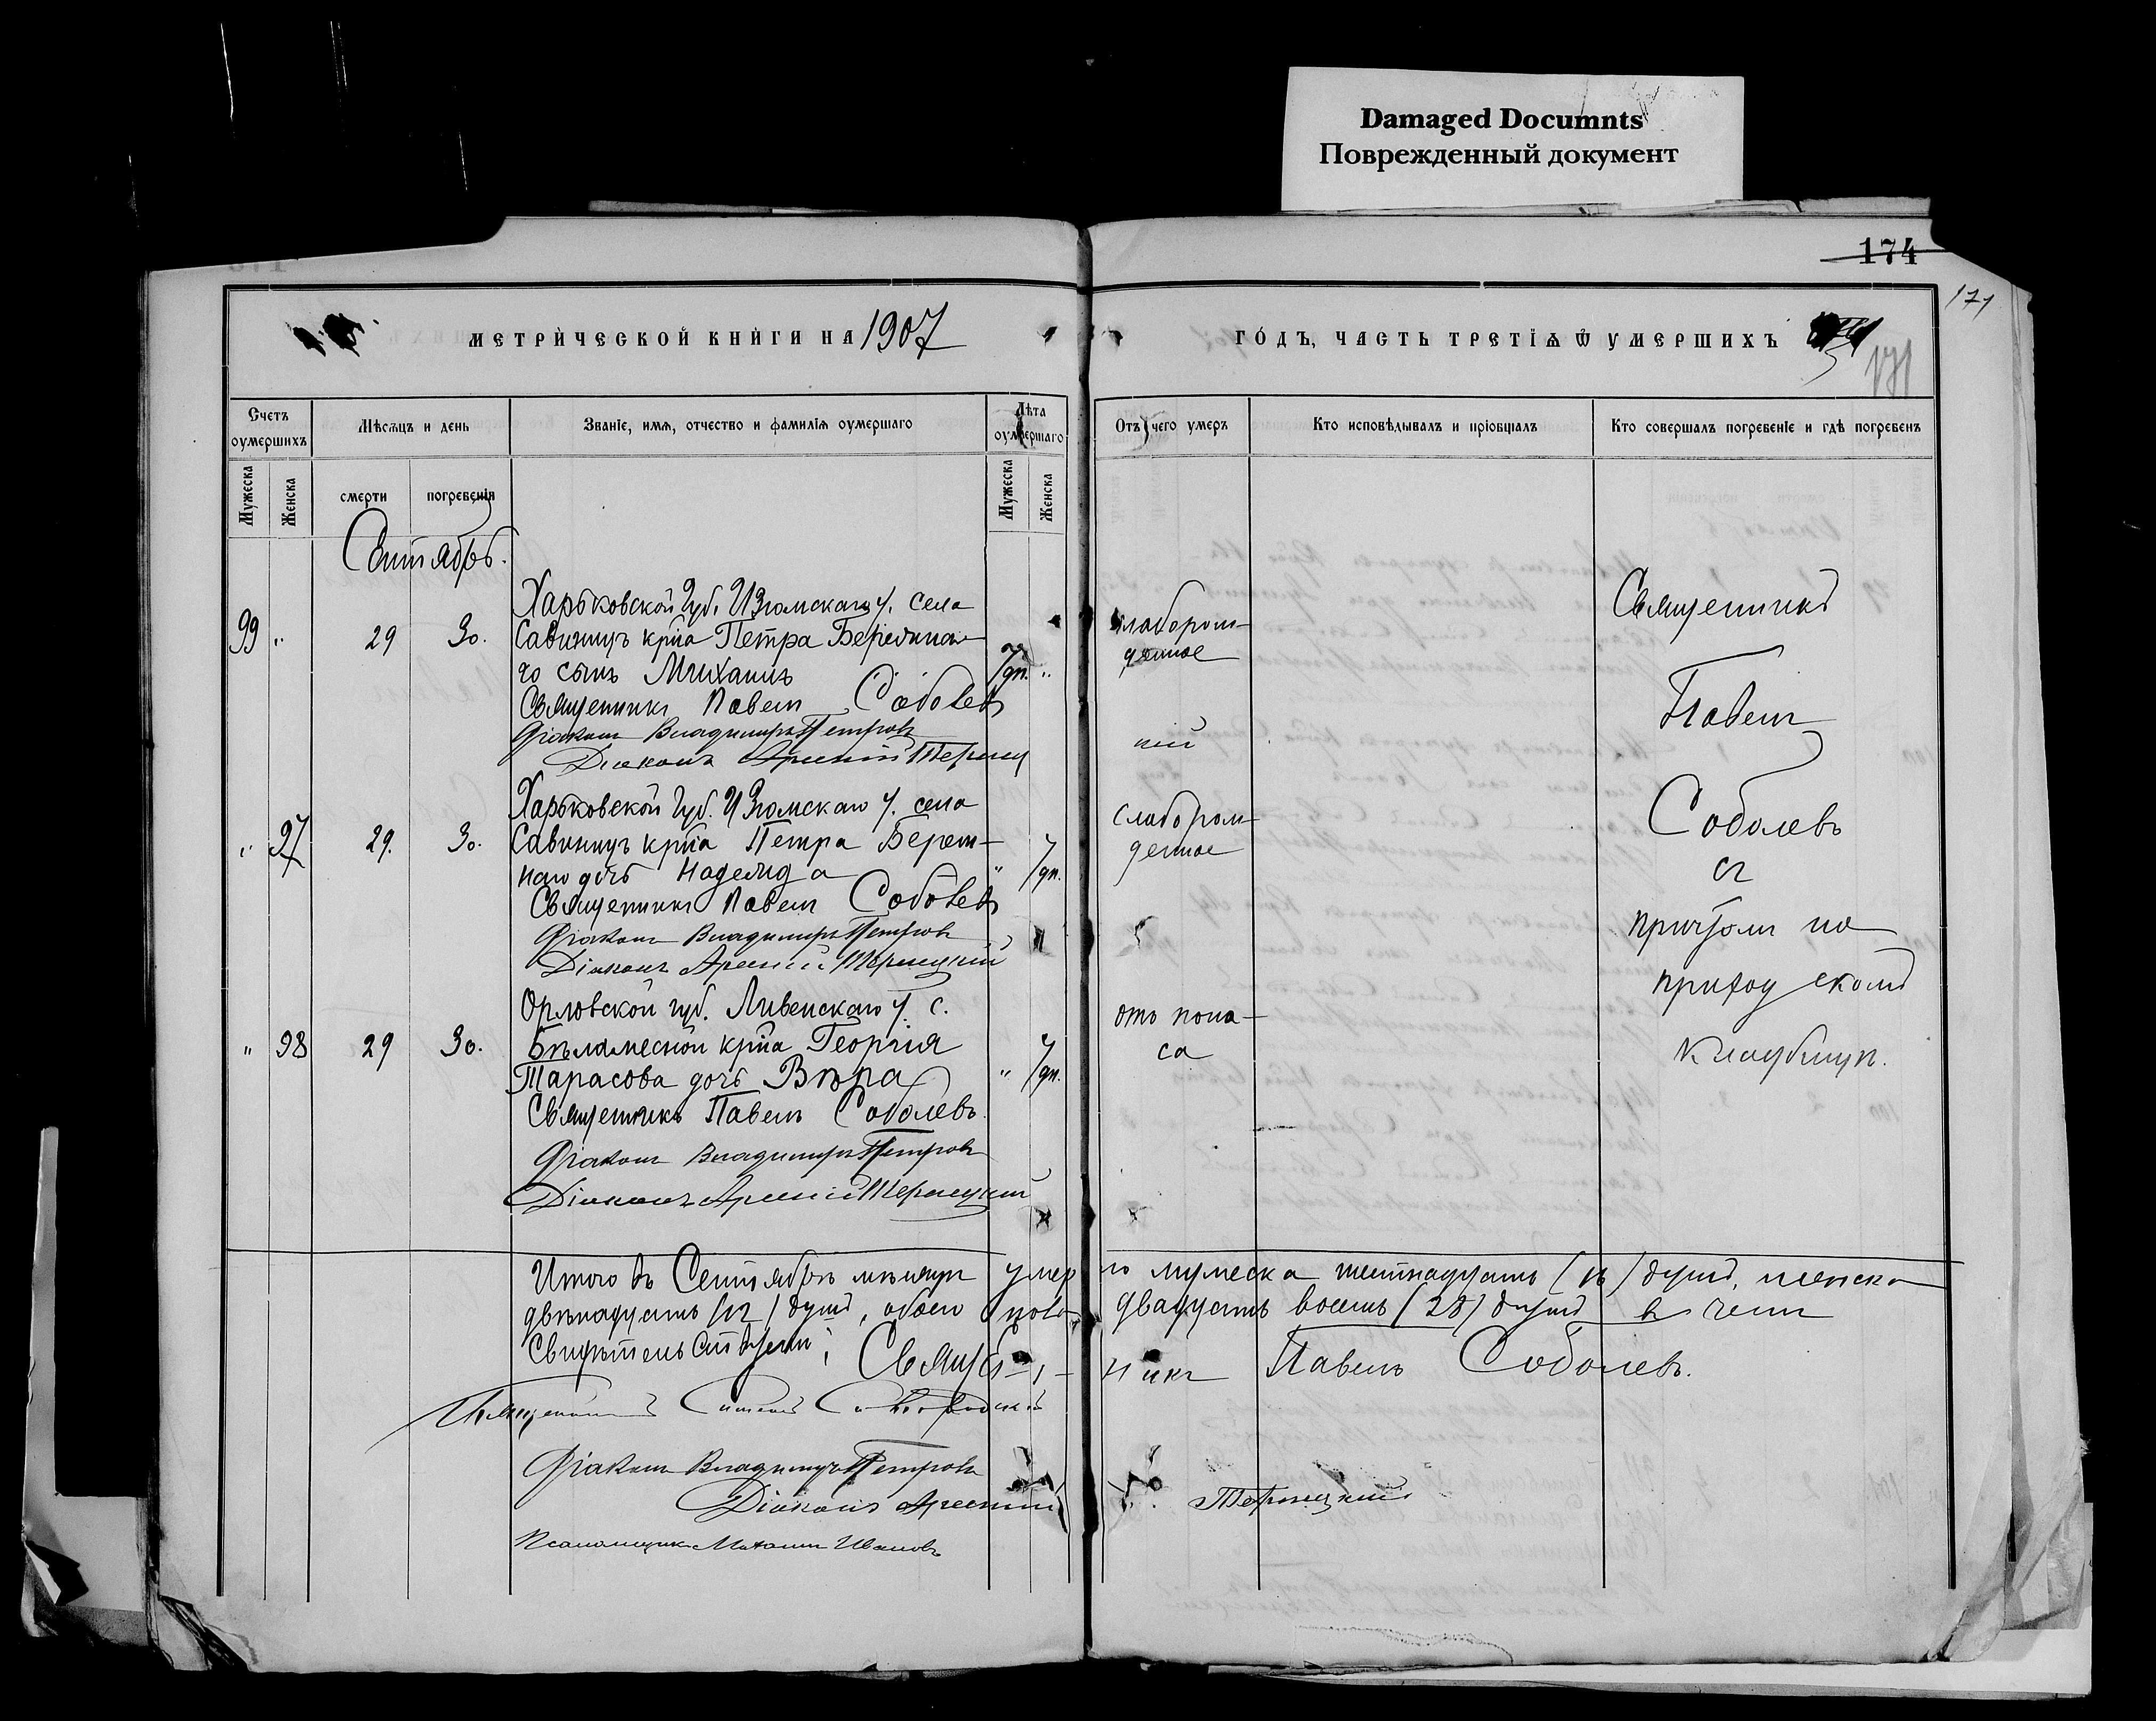 Damaged Documnts
Поврежденный документ
174
171
МЕТРИЧЕСКОЙ КНИГИ НА 1907
ГОДЪ, ЧАСТЬ ТРЕТІѦ Ѿ УМЕРШИХЪ
171
Счетъ оумершихъ
Мѣсѧцъ и день
Званіе, имѧ, отчество и фамиліѧ оумершаго
Лѣта оумершаго
Отъ чего умеръ
Кто исповѣдывалъ и пріобщалъ
Кто совершалъ погребеніе и гдѣ погребенъ
Мужеска
Женска
смерти
погребеніѧ
Мужеска
Женска
Сентябрь.
Харьковской Губ. Изюмскаго у. села
99 " 29 30. Савинцъ кр-на Петра Бережна-
го сынъ Михаилъ 7 дн. "
слаборож-
денное
Священникъ Павелъ Соболевъ
Діаконъ Владиміръ Петровъ
Діаконъ Арсеній
Харьковской Губ. Изюмскаго у. села
" 97 29. 30. Савинцъ кр-на Петра Береж-
наго дочь Надежда " 7 дн.
слаборож-
денное
Священникъ Павелъ Соболевъ
Діаконъ Владиміръ Петровъ
Діаконъ Арсеній
Орловской губ. Ливенскаго у. с.
" 98 29 30. кр-на Георгія
Тарасова дочь Вѣра " 7 дн.
отъ поно-
са
Священникъ Павелъ Соболевъ.
Діаконъ Владиміръ Петровъ
Діаконъ Арсеній
Священникъ
Павелъ
Соболевъ
съ
причтомъ на
приходскомъ
кладбищѣ.
Итого въ Сентябрѣ мѣсяцѣ умерло мужеска шестнадцать (16) душъ, женска
двѣнадцать (12) душъ, обоего пола двадцать восемь (28) душъ въ чемъ
свидѣтельствуемъ: Священникъ Павелъ Соболевъ.
Священникъ
Діаконъ Владиміръ Петровъ
Діаконъ Арсеній
Псаломщикъ Михаилъ Ивановъ